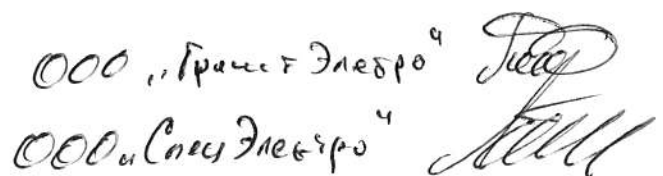 ООО „Гранит Электро"
ООО „СпецЭлектро"